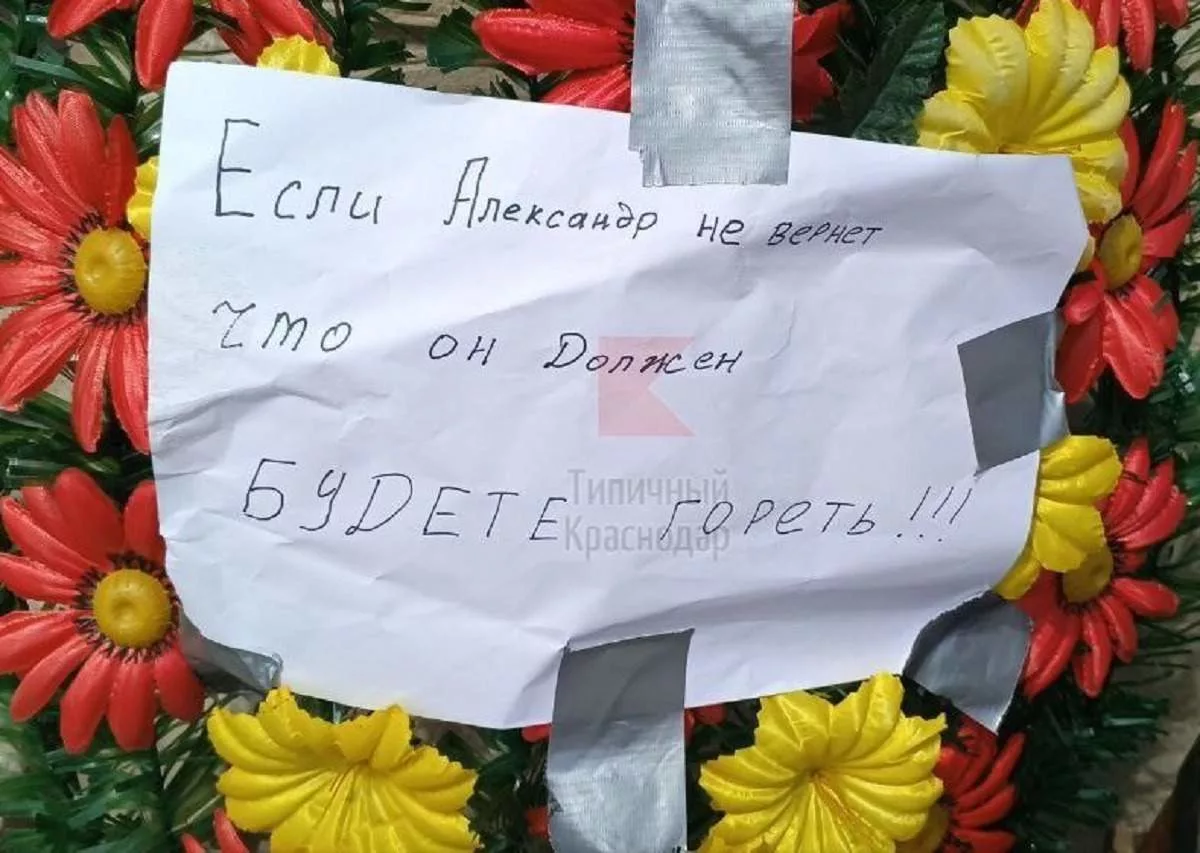 Если Александр не вернет
что он Должен
БУДЕТЕ гореть!!!
Типичный
Краснодар